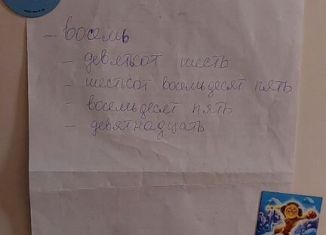 - восемь
- девятьсот шесть
- шестьсот восемьдесят пять
- восемьдесят пять
- девятнадцать